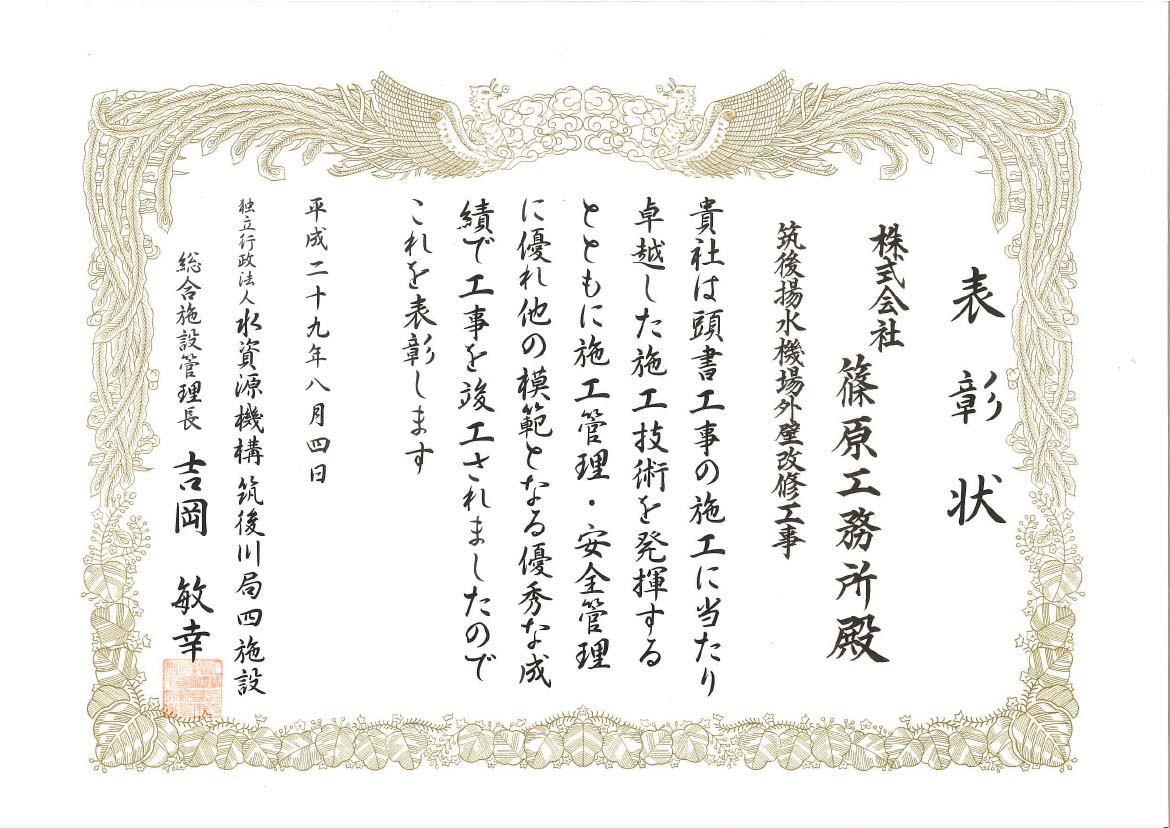 表彰状
株式会社
篠原工務所殿
筑後揚水機場外壁改修工事
貴社は頭書工事の施工に当たり
卓越した施工技術を発揮する
とともに施工管理・安全管理
に優れ他の模範となる優秀な成
績で工事を竣工されましたので
これを表彰します
平成二十九年八月四日
独立行政法人水資源機構筑後川局四施設
総合施設管理長 吉岡 敏幸